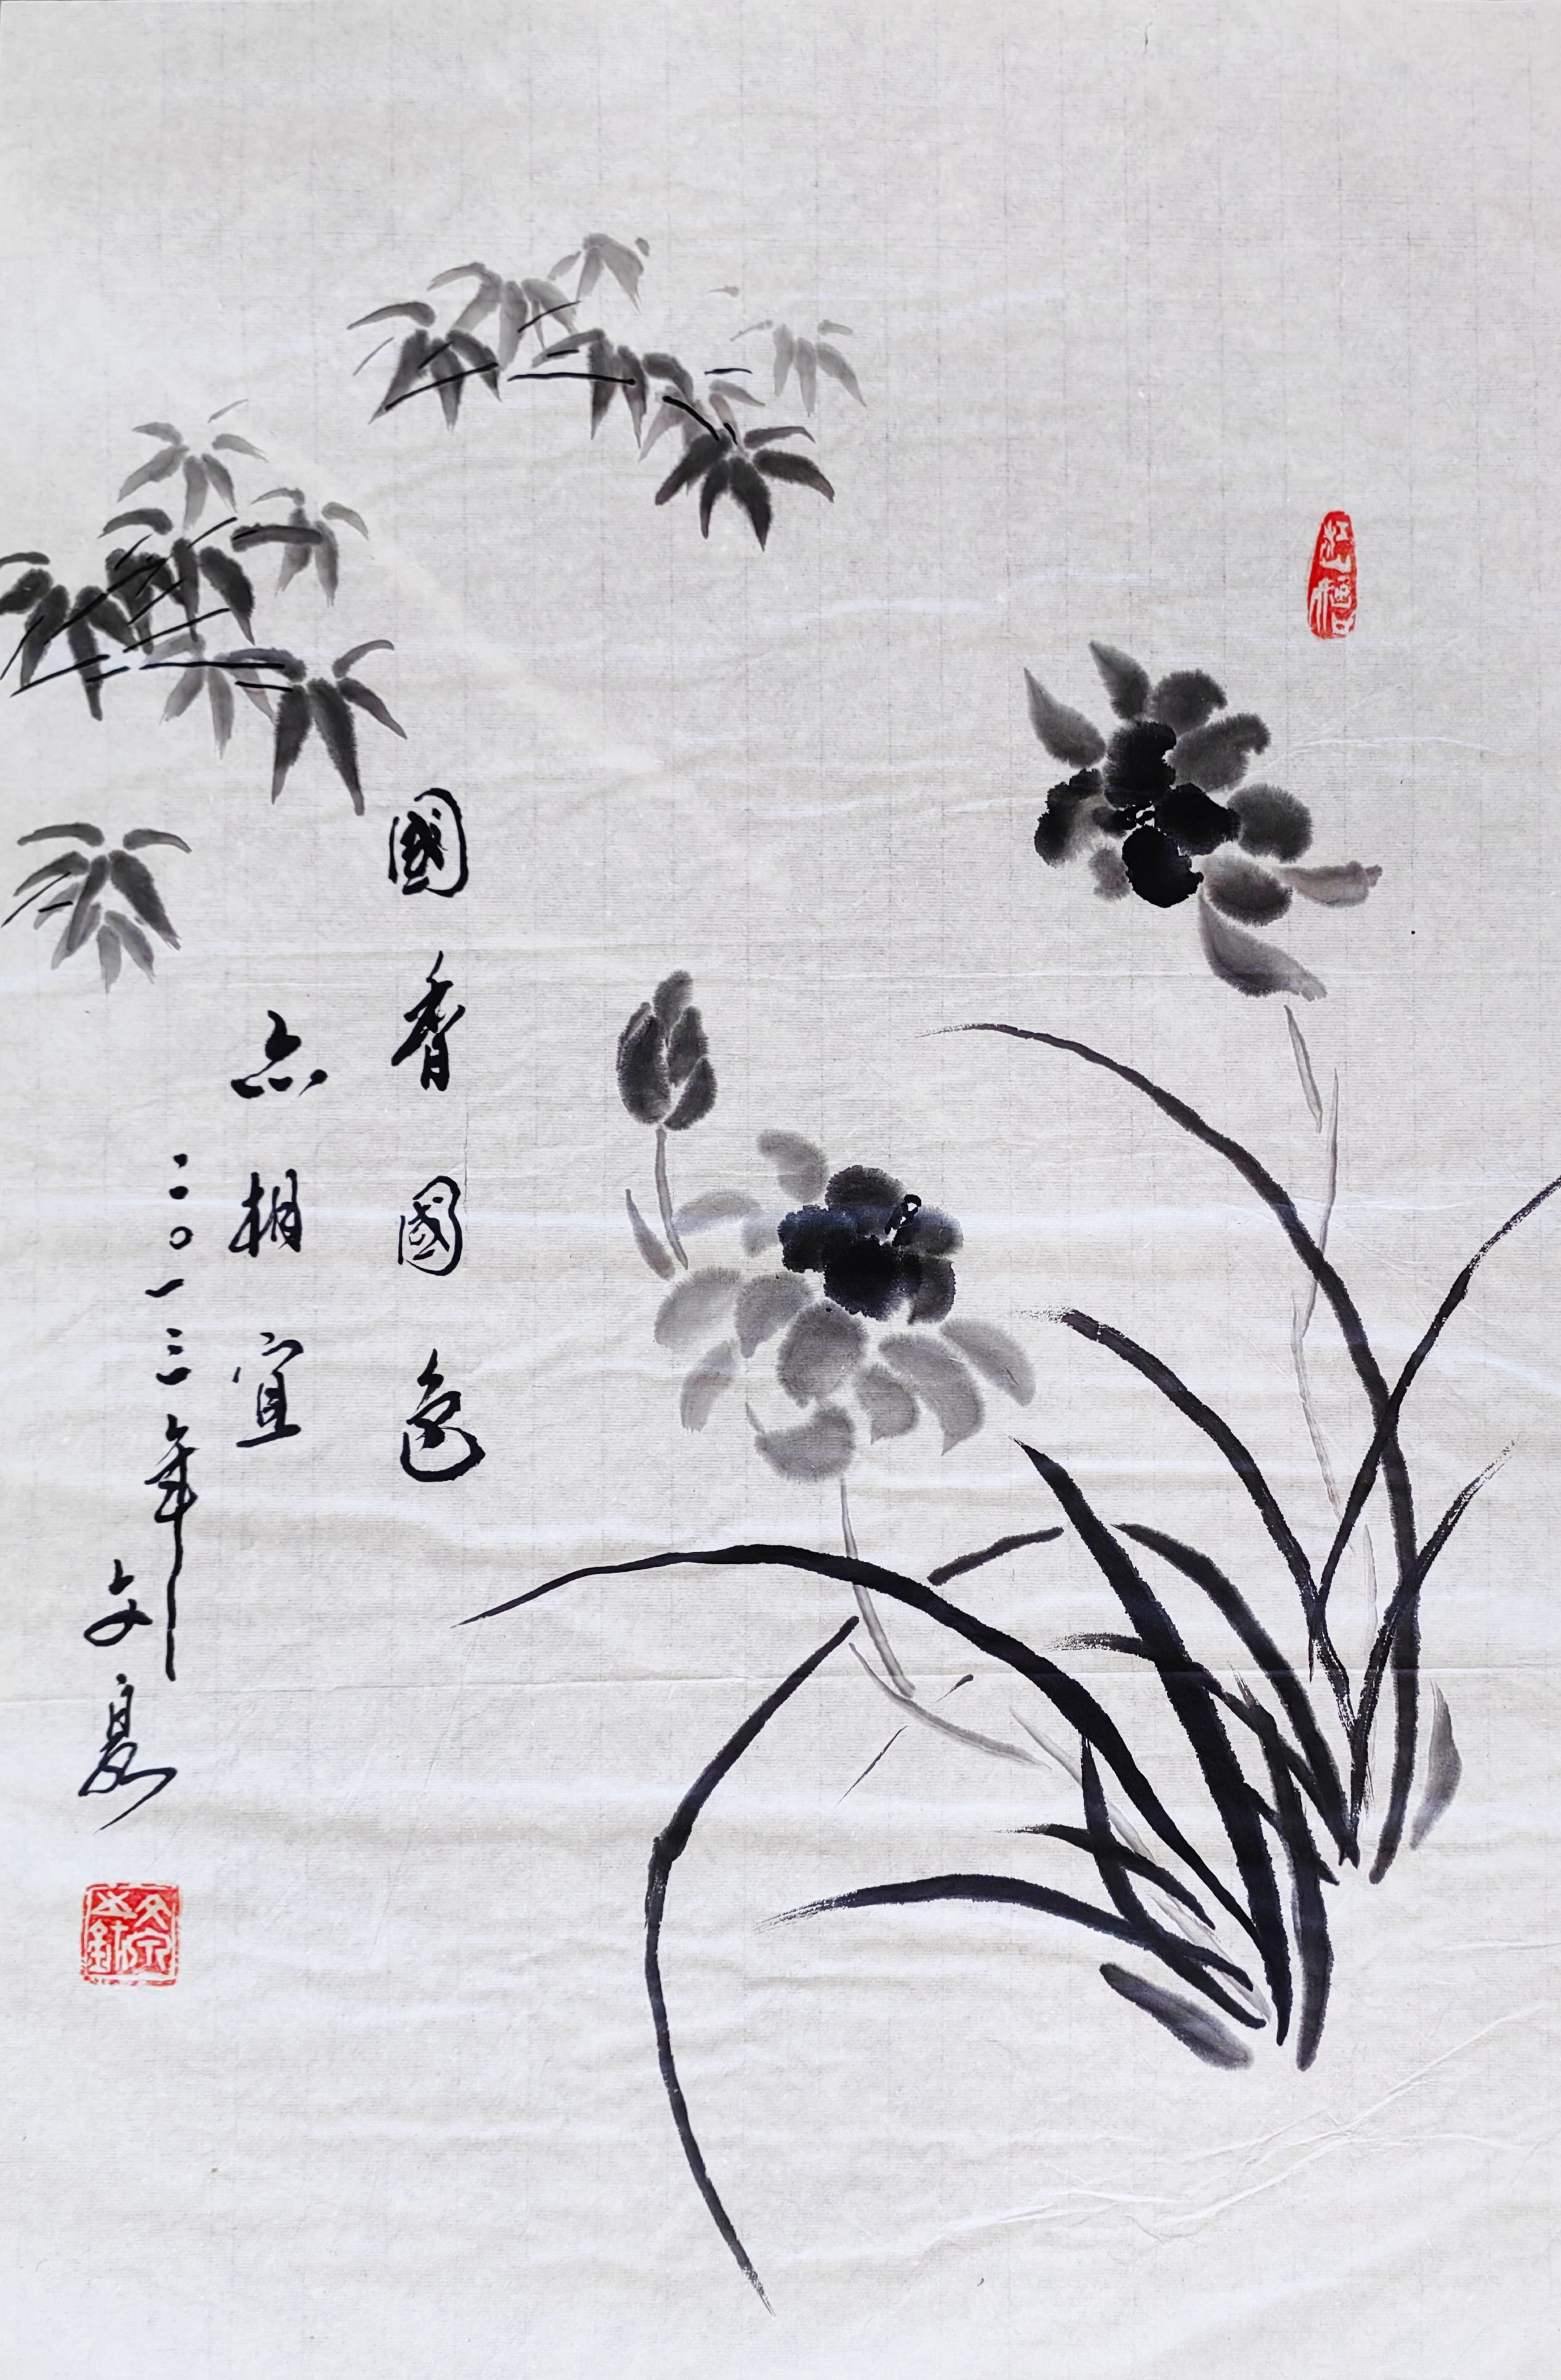 國香國色
亦相宜
二〇一三年
夏